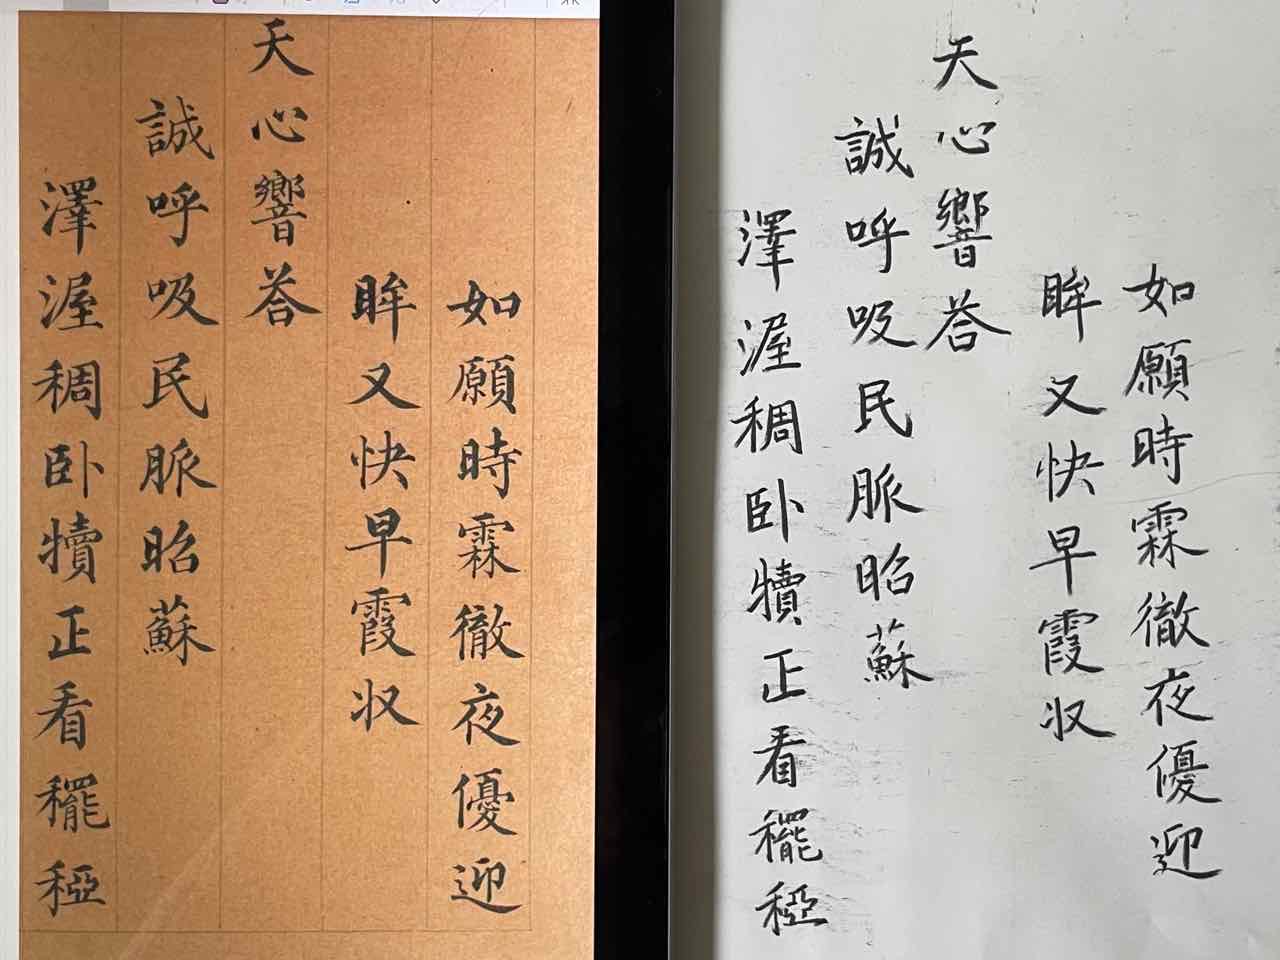 如願時霖徹夜優迎
眸又快早霞収
天心響荅
誠呼吸民脈昭蘇
澤渥稠卧犢正看䆉稏
如願時霖徹夜優迎
眸又快早霞収
天心響荅
誠呼吸民脈昭蘇
澤渥稠卧犢正看䆉稏